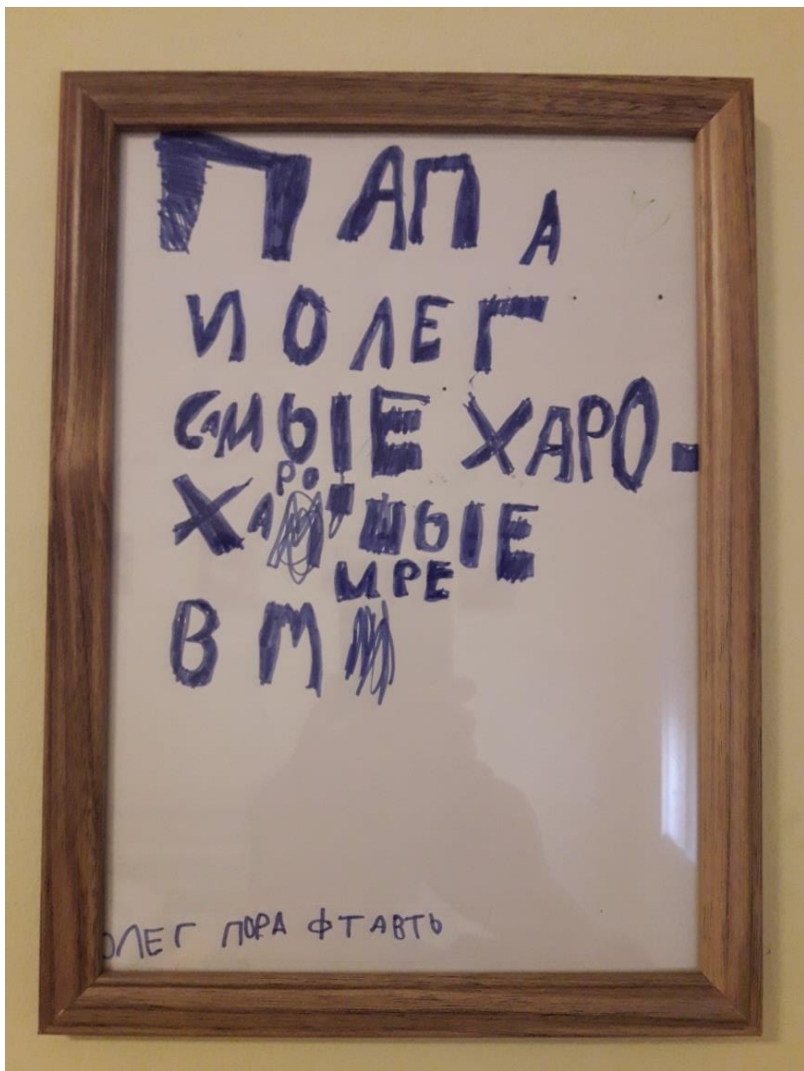 ПАПА
И ОЛЕГ
САМЫЕ ХАРО-
ХАРОШЫЕ
В МИРЕ
ОЛЕГ ПОРА ФТАВТЬ